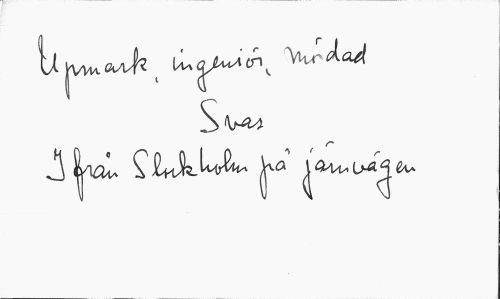 Upmark, ingeniör, mördad
Svar
I från Stockholm på järnvägen